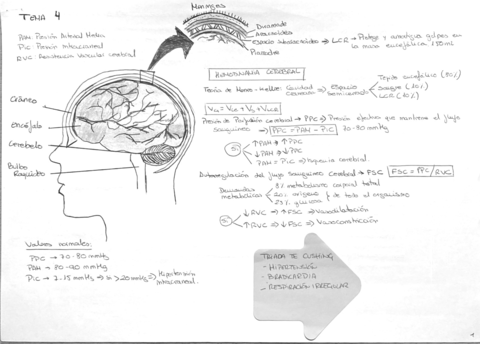 TEMA 4
PAM Presión Arterial Media
PIC Presión Intracraneal
RVC Resistencia Vascular cerebral
Meninges
Duramadre
Aracnoides
Espacio Subaracnoideo ⇒ LCR → Protege y amortigua golpes en
la masa encefálica 150 ml
Piamadre
Cráneo
Encéfalo
Cerebelo
Bulbo
Raquídeo
HEMODINAMIA CEREBRAL
Teoría de Monro-Kellie: Cavidad ⇒ Espacio
Tejido encefálico (80%)
Sangre (10%)
LCR (10%)
Presión de Perfusión Cerebral → PPC ⇒ Presión efectiva que mantiene el flujo
sanguíneo ⇒ PPC = PAM - PIC 70-80 mmHg
Si
↑ PAM ⇒ ↑ PPC
↓ PAM ⇒ ↓ PPC
PAM = PIC ⇒ Isquemia cerebral.
Autorregulación del flujo sanguíneo Cerebral → FSC FSC = PPC/RVC
Demandas
metabólicas
metabolismo corporal total
20% oxígeno
25% glucosa
de todo el organismo
Si
↓ RVC ⇒ ↑ FSC ⇒ Vasodilatación
↑ RVC ⇒ ↓ FSC ⇒ Vasoconstricción
Valores normales:
PPC → 70-80 mmHg
PAM → 80-90 mmHg
PIC → > 20 mmHg ⇒ Hipertensión
intracraneal.
TRIADA DE CUSHING
- HIPERTENSIÓN
- BRADICARDIA
- RESPIRACIÓN IRREGULAR